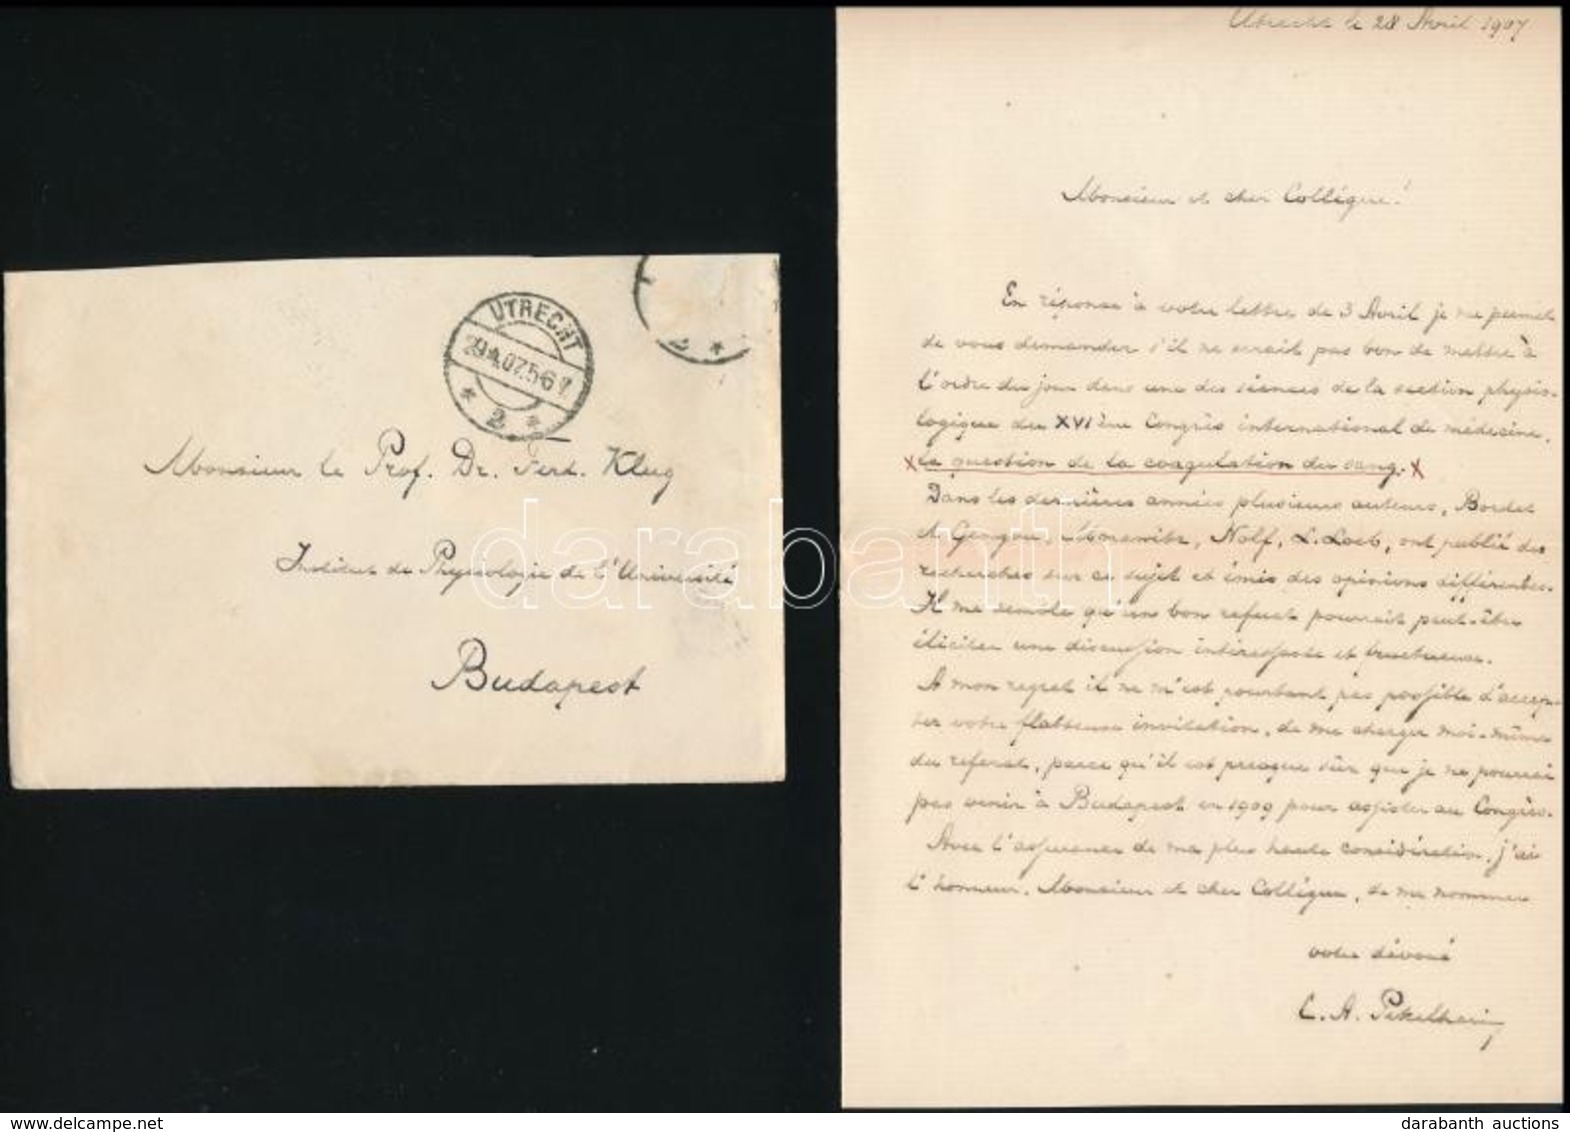 Utrecht le 28 Avril 1907
Monsieur et cher Collègue!
En réponse à votre lettre de 3 Avril je me permets
de vous demander s'il ne serait pas bon de mettre à
l'ordre du jour dans une des séances de la section physio-
logique du XVIème Congrès international de médecine,
x la question de la coagulation du sang. x
Dans les dernières années plusieurs auteurs, Bordet
et Gengou, Morawitz, Nolf, L. Loeb, ont publié des
recherches sur ce sujet et émis des opinions différentes.
Il me semble qu'un bon referat pourrait peut-être
éliciter une discussion intéressante et fructueuse.
A mon regret il ne m'est pourtant pas possible d'accep-
ter votre flatteuse invitation, de me charger moi-même
du referat, parce qu'il est presque sûr que je ne pourrai
pas venir à Budapest en 1909 pour assister au Congrès.
Avec l'assurance de ma plus haute considération, j'ai
l'honneur, Monsieur et cher Collègue, de me nommer
votre dévoué
C. A. Pekelharing
UTRECHT
29.4.07.5-6V
* 2 *
2 *
Monsieur le Prof. Dr. Ferd. Klug
Institut de Physiologie de l'Université
Budapest
darabanth
darabanth auctions